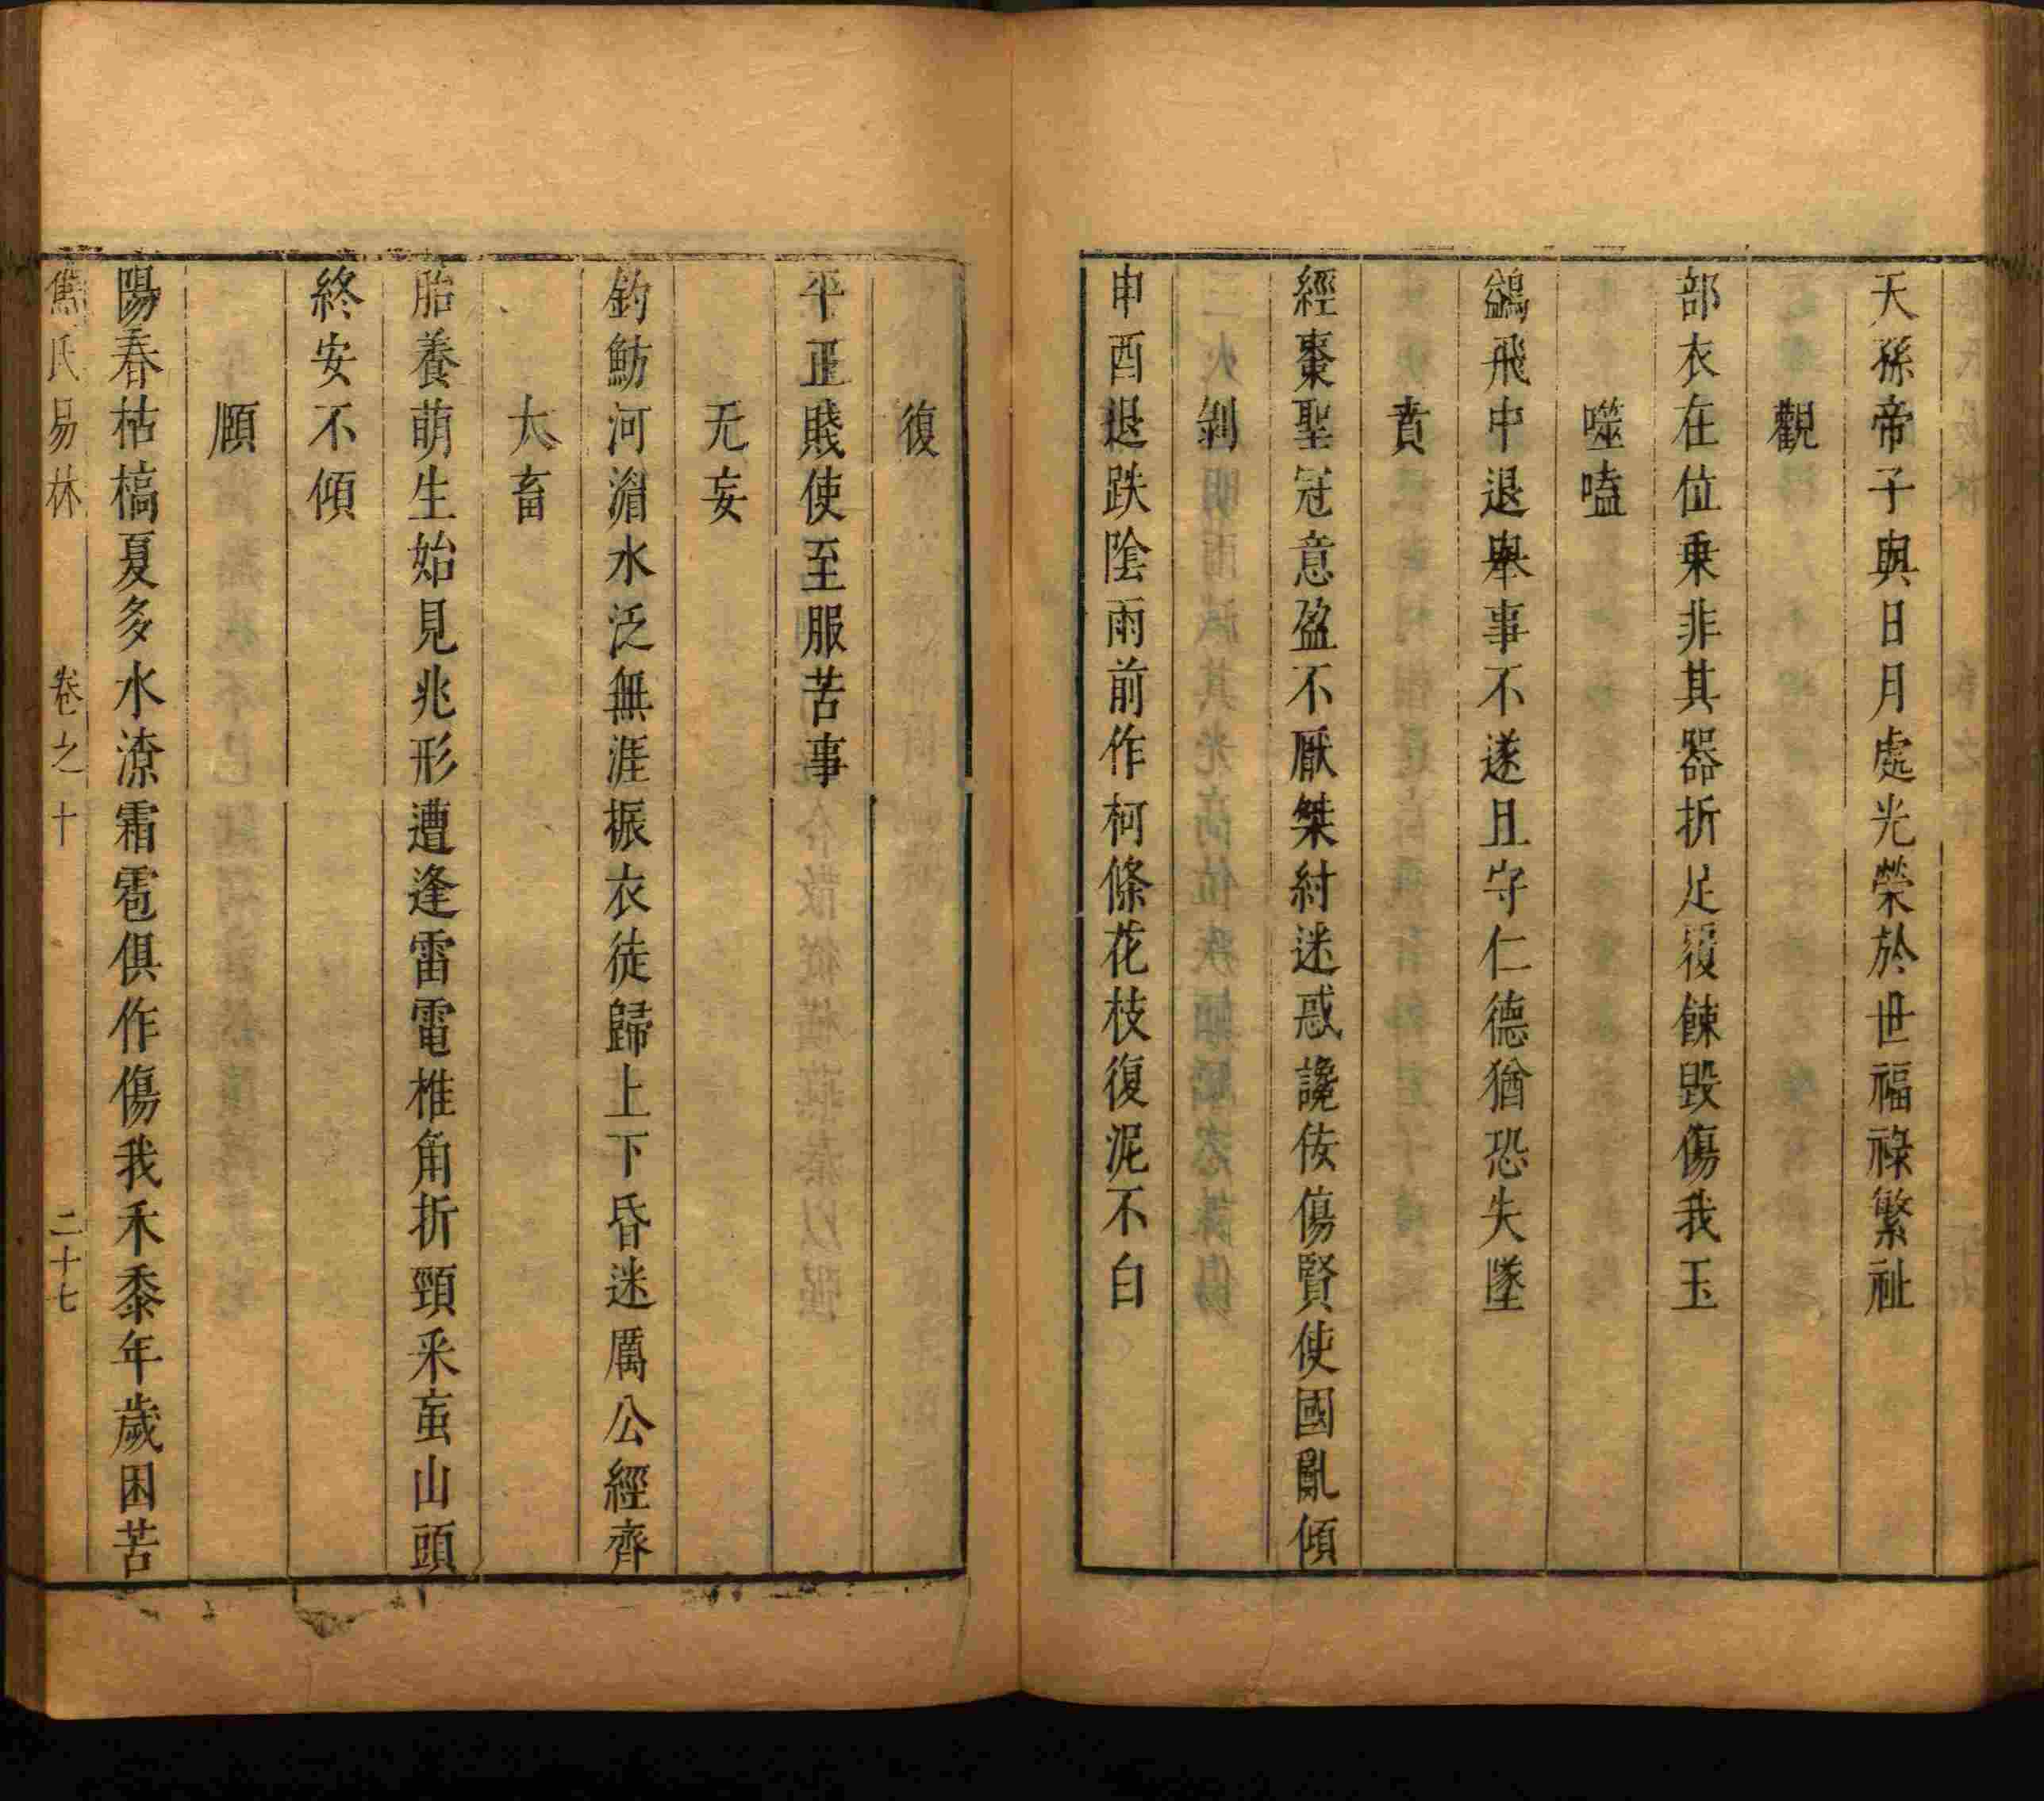 天孫帝子與日月處光榮於世福祿繁祉
觀
部衣在位乗非其器折足覆餗毀傷我玉
噬嗑
鷁飛中退舉事不遂且守仁德猶恐失墜
賁
經棗聖冠意盈不厭桀紂迷惑讒佞傷賢使國亂傾
剝
申酉退跌隂雨前作柯條花枝復泥不白
復
平正賤使至服苦事
无妄
釣魴河湄水泛無涯振衣徒歸上下昏迷厲公經齊
大畜
胎養萌生始見兆形遭逢雷電椎角折頸釆䖟山頭
終安不傾
頤
陽春枯槁夏多水潦霜雹俱作傷我禾黍年歲困苦
焦氏易林 卷之十 二十七